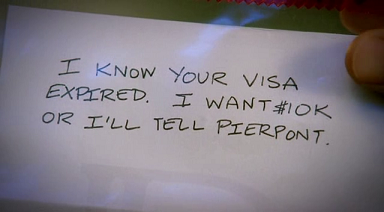 I KNOW YOUR VISA
EXPIRED. I WANT $10K
OR I'LL TELL PIERPONT.